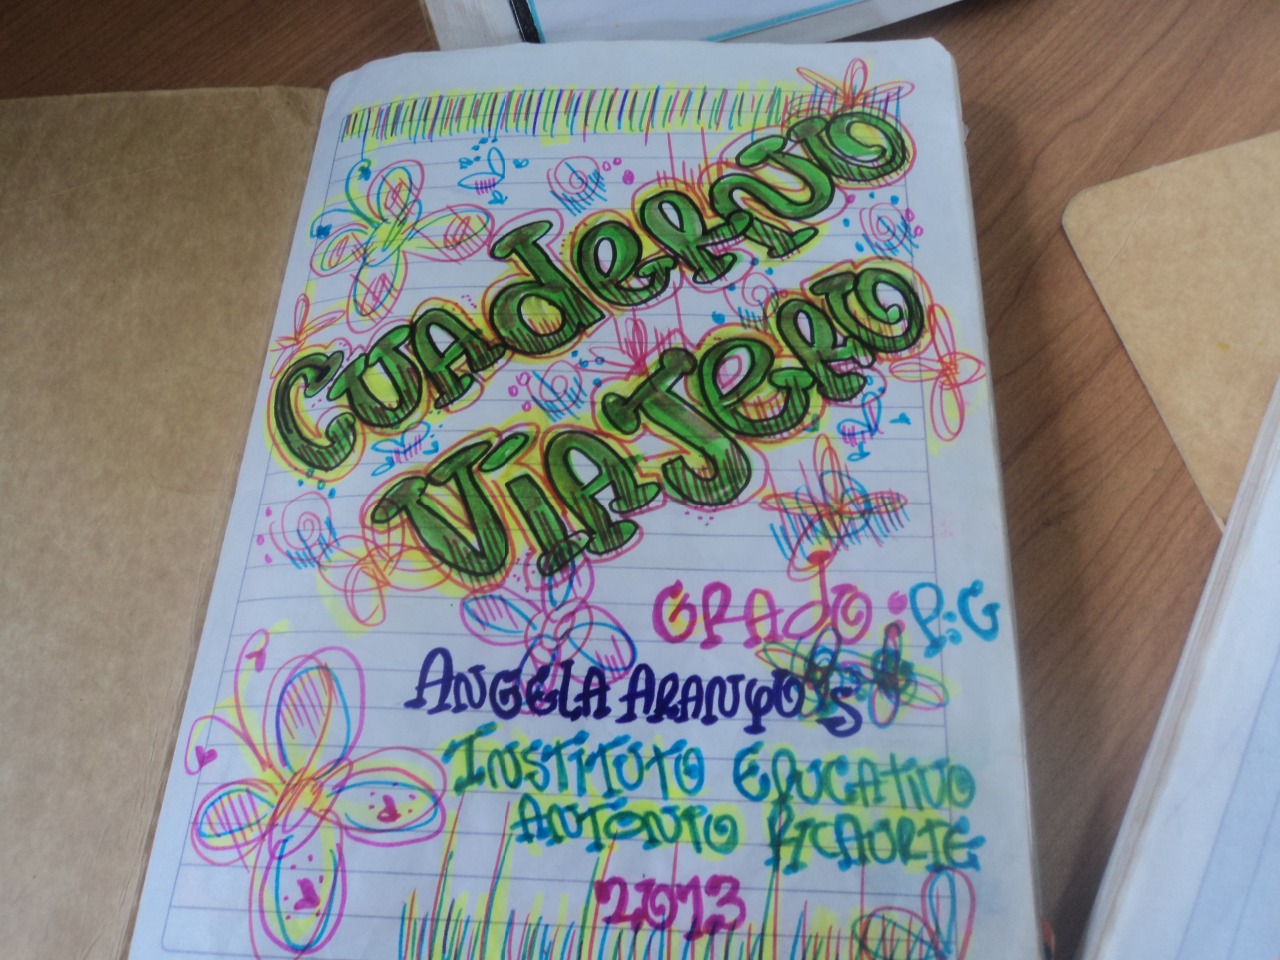 CUAdERNO
ViAJERO
GRADO : P:G
ANGELA ARANGO'S
INSTITUTO EDUCATIVO
ANTONIO RICAURTE
2013